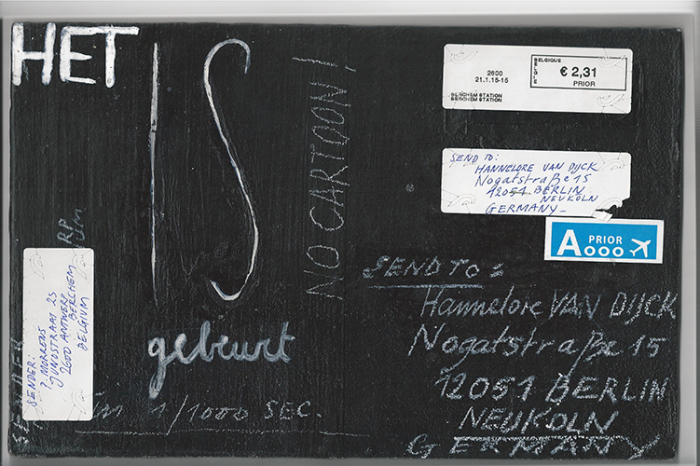 HET
IS
gebeurt
In 1/1000 SEC.
NO CARTOON!
BELGIQUE
BELGIE
€ 2,31
PRIOR
2600
21.1.15-15
BERCHEM STATION
BERCHEM STATION
SEND TO:
HANNELORE VAN DIJCK
Nogatstraße 15
12051 BERLIN
NEUKOLN
GERMANY
A PRIOR
SEND TO:
Hannelore VAN DIJCK
Nogatstraße 15
12051 BERLIN
NEUKOLN
GERMANY
SENDER:
P. MORRENS
JUNOSTRAAT 23
2600 ANTWERP
BERCHEM
BELGIUM
SENDER